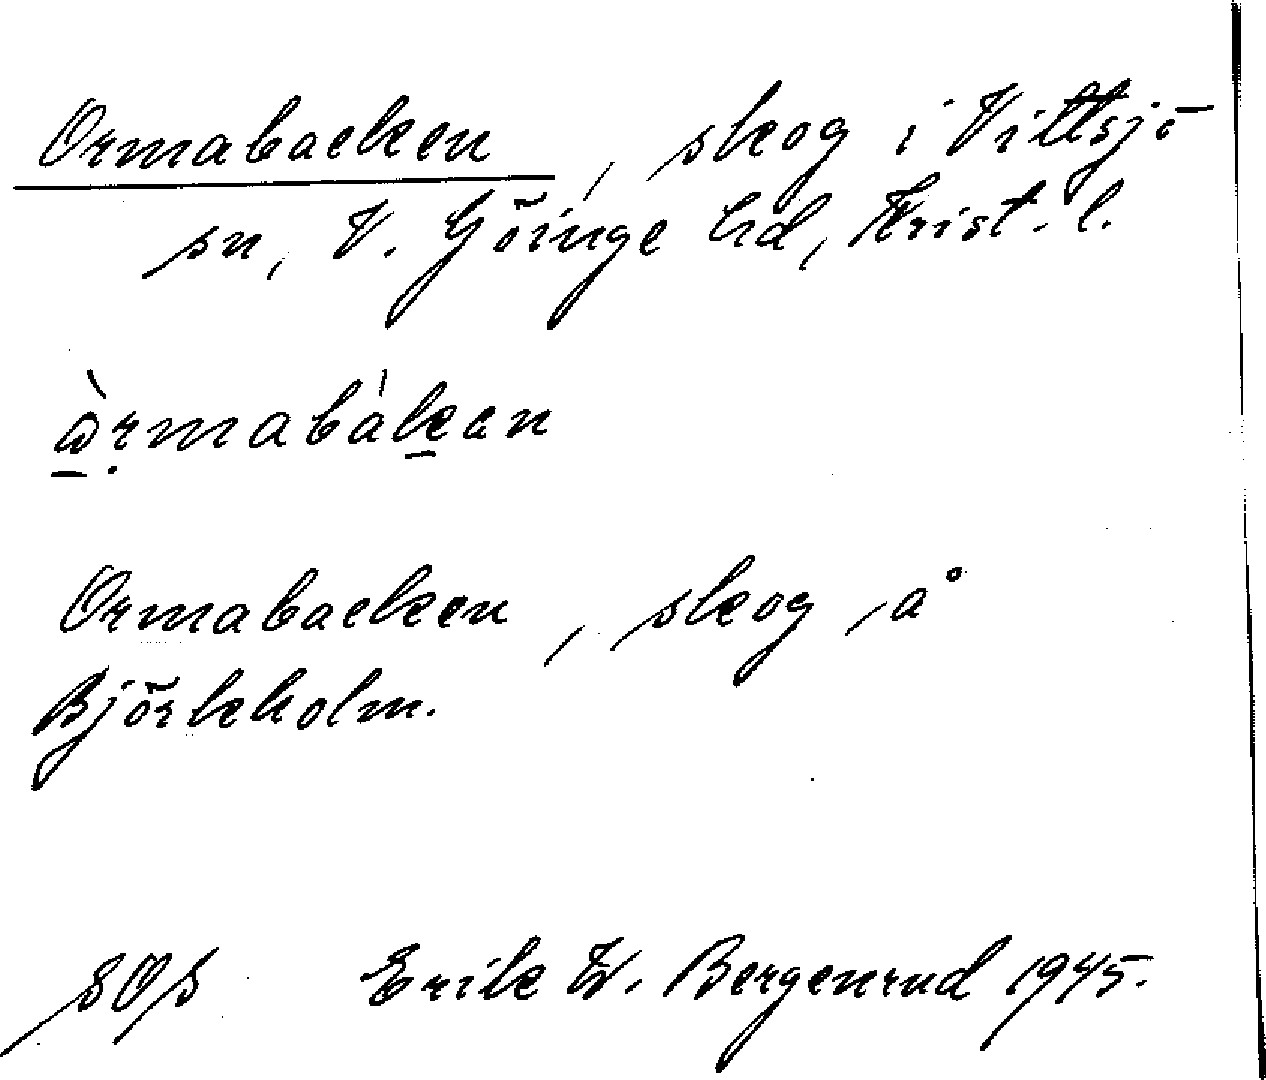 Ormabacken, skog i Vittsjö
sn, V. Göinge hd, Krist. l.
ꞷ̀rmabàkan
Ormabacken, skog å
Björkholm.
SOS Erik W. Bergenrud 1945.